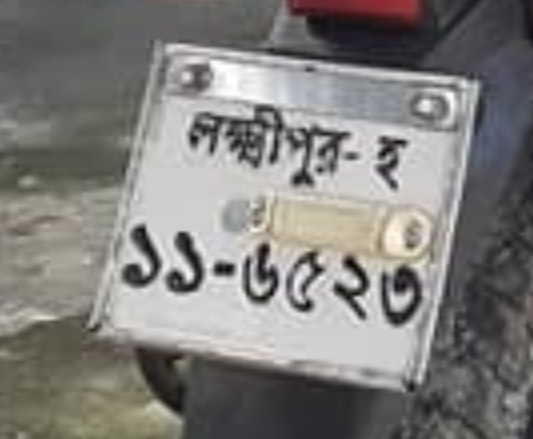 লক্ষ্মীপুর-হ
১১-৬৫২৩